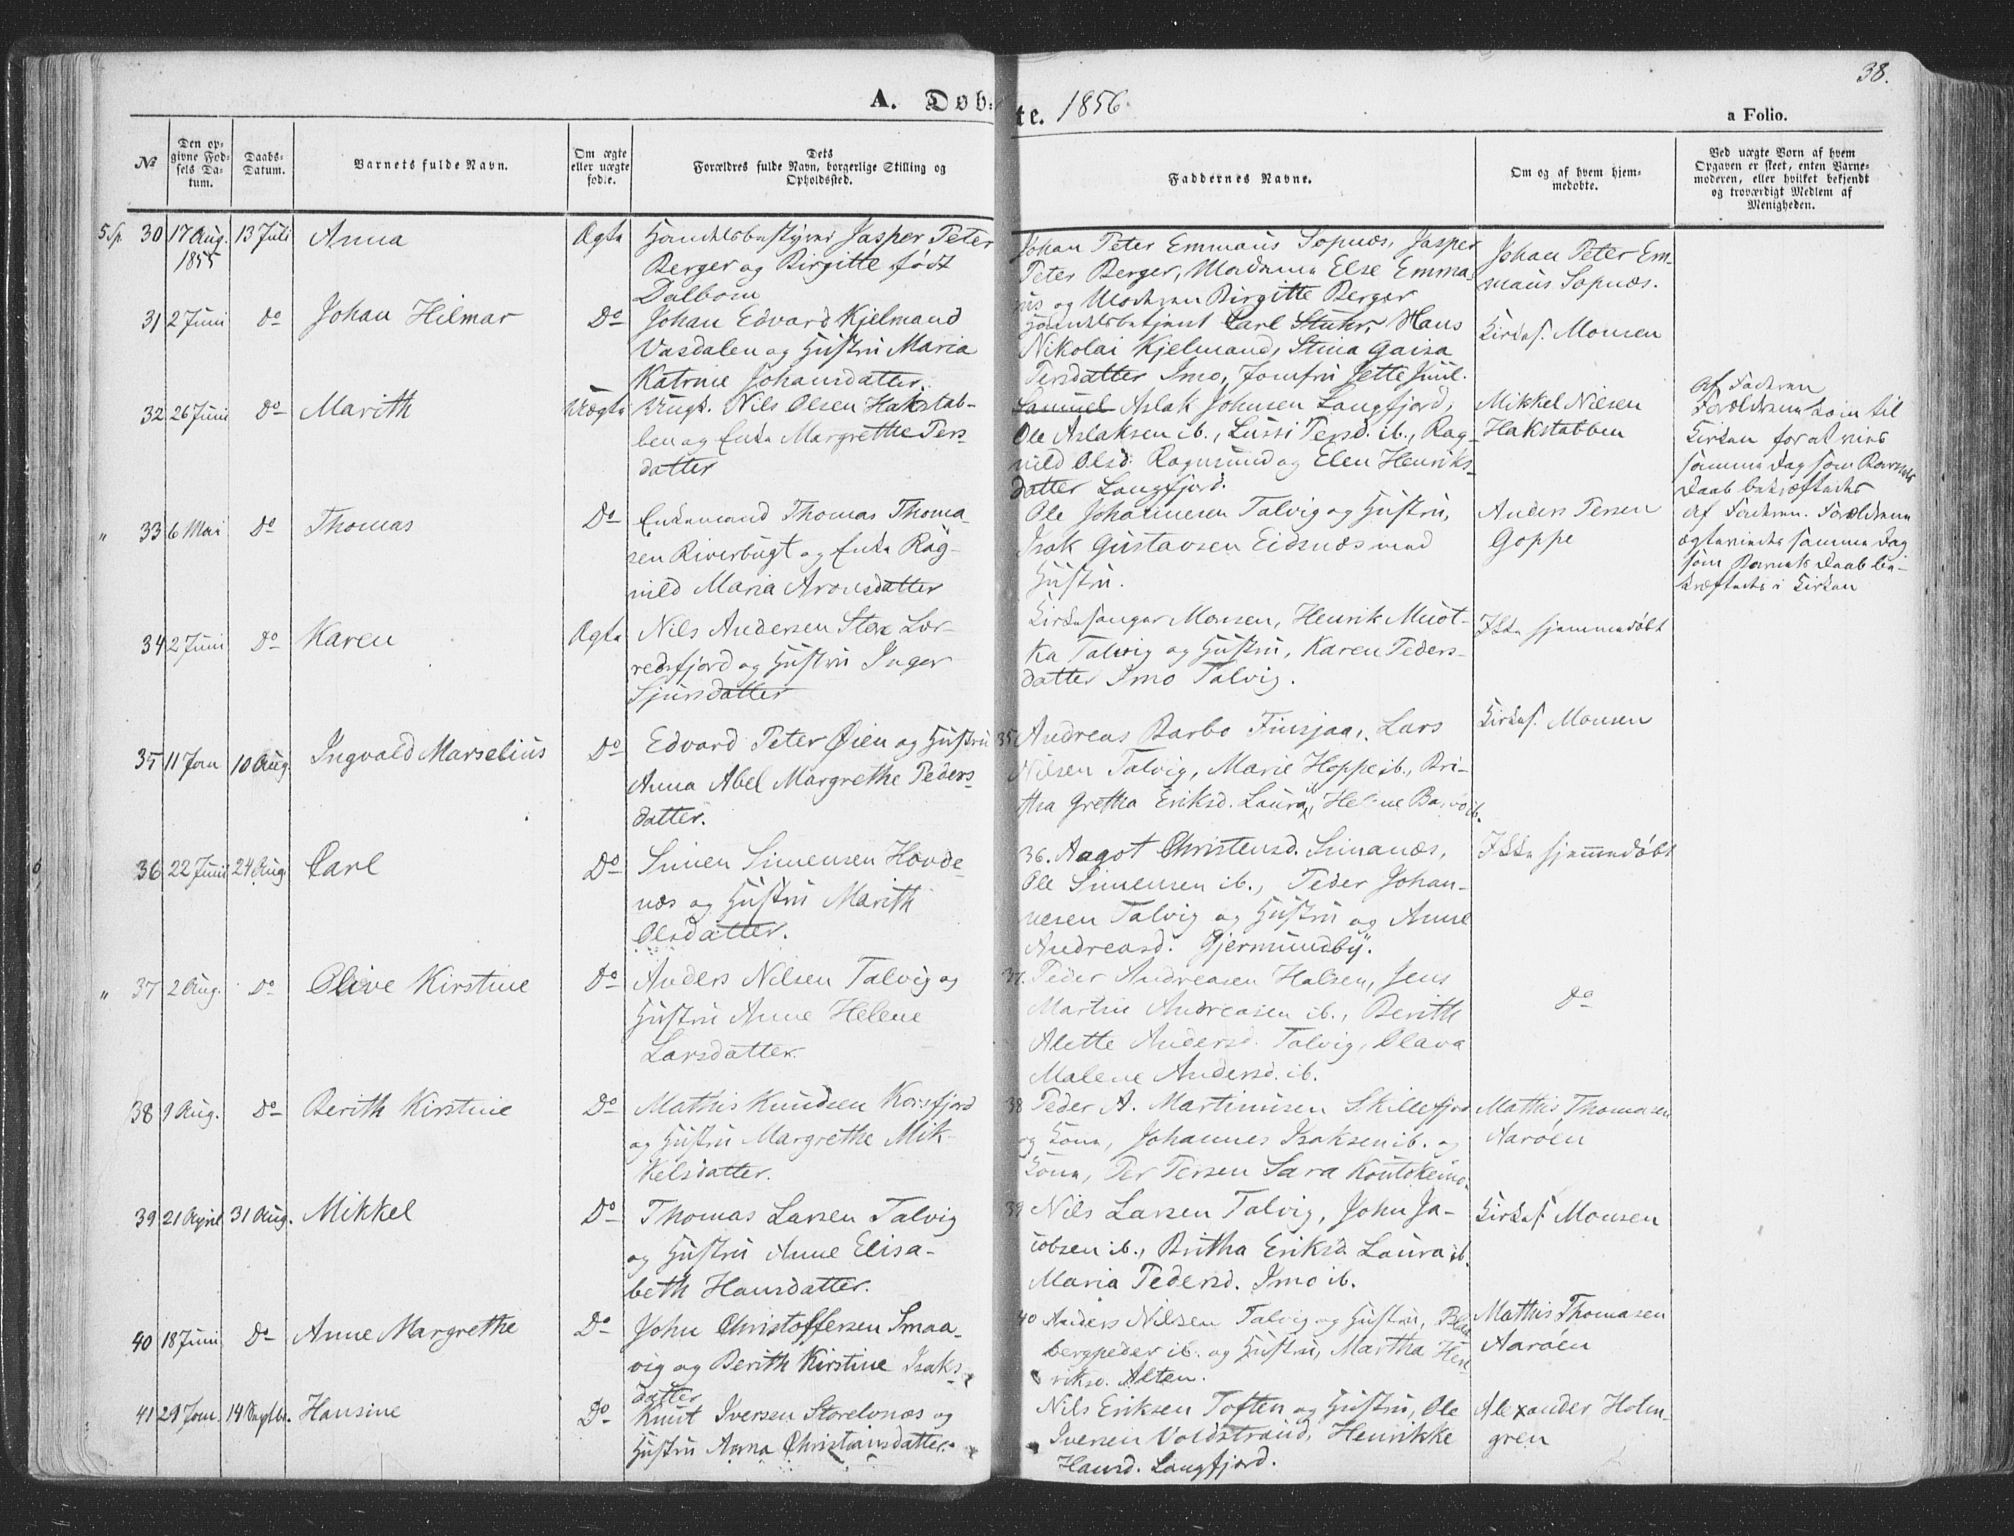 38.
A. Døbte. 1856.
a Folio.
№
Den op-
givne Fød-
sels Da-
tum.
Daabs-
Datum.
Barnets fulde Navn.
Om ægte
eller uægte
fødte.
Dets
Forældres fulde Navn, borgerlige Stilling og
Opholdssted.
Faddernes Navne.
Om og af hvem hjem-
medøbte.
Ved uægte Børn af hvem
Opgaven er skeet, enten Barne-
moderen, eller hvilket bekjendt
og troværdigt Medlem af
Menigheden.
5 Sp. 30 17 Aug. 1855 13 Juli Anna Ægte
Handelsbestyrer Jasper Peter
Berger og Birgitte født
Dalbom
Johan Peter Emmaus Sopnæs, Jasper
Peter Berger, Madame Else Emma-
us og Moderen Birgitte Berger
Johan Peter Em-
maus Sopnæs.
31 2 Juni Do Johan Hilmar Do
Johan Edvard Kjelmand
Vasdalen og Hustru Maria
Katrine Johansdatter.
Handelsbetjent Carl Stuhr, Hans
Nikolai Kjelmand, Stina Gaisa
Persdatter Imo, Jomfru Jette Juul.
Kirkes. Monsen
32 26 Juni Do Marith Uægte
Ungk. Nils Olsen Hakstab-
ben og Enke Margrethe Pers-
datter
Samuel Aslak Johnsen Langfjord,
Ole Aslaksen ib., Lussi Persd. ib., Rag-
nild Olsd. Ragnsund og Elen Henriks-
datter Langfjord.
Mikkel Nilsen
Hakstabben
Af Faderen
Forældrene kom til
Kirken for at vies
samme Dag som Barnets
Daab bekræftedes
" 33 6 Mai Do Thomas Do
Enkemand Thomas Thoma-
sen Riverbugt og Enke Rag-
nild Maria Aronsdatter
Ole Johannesen Talvig og Hustru,
Isak Gustavsen Eidsnæs med
Hustru.
Anders Persen
Goppe
Af Faderen. Forældrene
ægteviedes samme Dag
som Barnets Daab be-
kræftedes i Kirken
34 2 Juni Do Karen Ægte
Nils Andersen Store Lær-
redsfjord og Hustru Inger
Sjursdatter
Kirkesanger Monsen, Henrik Muot-
ka Talvig og Hustru, Karen Peders-
datter Imo Talvig.
Ikke hjemmedøbt
35 11 Jan 10 Aug. Ingvald Marselius Do
Edvard Peter Øien og Hustru
Anna Abel Margrethe Peders-
datter.
35 Andreas Barbo Finsjaa, Lars
Nilsen Talvig, Marie Hoppe ib., Bri-
tha Gretha Eriksd. Laura ib, Helene Barbo ib.
Kirkes. Monsen
36 22 Juni 24 Aug. Carl Do
Simen Simensen Hovde-
næs og Hustru Marith
Olsdatter.
36. Aagot Christensd. Simanæs,
Ole Simensen ib., Peder Johan-
nesen Talvig og Hustru og Anne
Andreasd. Gjermundby.
Ikke hjemmedøbt
" 37 2 Aug. Do Olive Kirstine Do
Anders Nilsen Talvig og
Hustru Anne Helene
Larsdatter.
37. Peder Andreasen Halsen, Jens
Martin Andreasen ib., Berith
Alette Andersd. Talvig, Olava
Malene Andersd. ib.
Do
38 9 Aug. Do Berith Kirstine Do
Mathis Knudsen Korsfjord
og Hustru Margrethe Mik-
kelsdatter.
38 Peder A. Martinusen Skillefjord
og Kone, Johannes Isaksen ib. og
Kone, Per Persen Sara Koutokeino.
Mathis Thomasen
Aarøen
39 21 April 31 Aug. Mikkel Do
Thomas Larsen Talvig
og Hustru Anne Elisa-
beth Hansdatter.
39 Nils Larsen Talvig, John Ja-
cobsen ib., Britha Eriksd. Laura ib.
Maria Pedersd. Imo ib.
Kirkes. Monsen
40 18 Juni Do Anne Margrethe Do
John Christoffersen Smaa-
vig og Berith Kirstine Isaks-
datter
40 Anders Nilsen Talvig og Hustru,
bergpeder ib. og Hustru, Martha Hen-
riksd. Alten.
Mathis Thomasen
Aarøen
41 29 Jan. 14 Septbr. Hansine Do
Knut Iversen Storelvnæs og
Hustru Anna Christiansdatter.
Nils Eriksen Toften og Hustru, Ole
Iversen Voldstrand, Henrikke
Hansd. Langfjord.
Alexander Holm-
gren